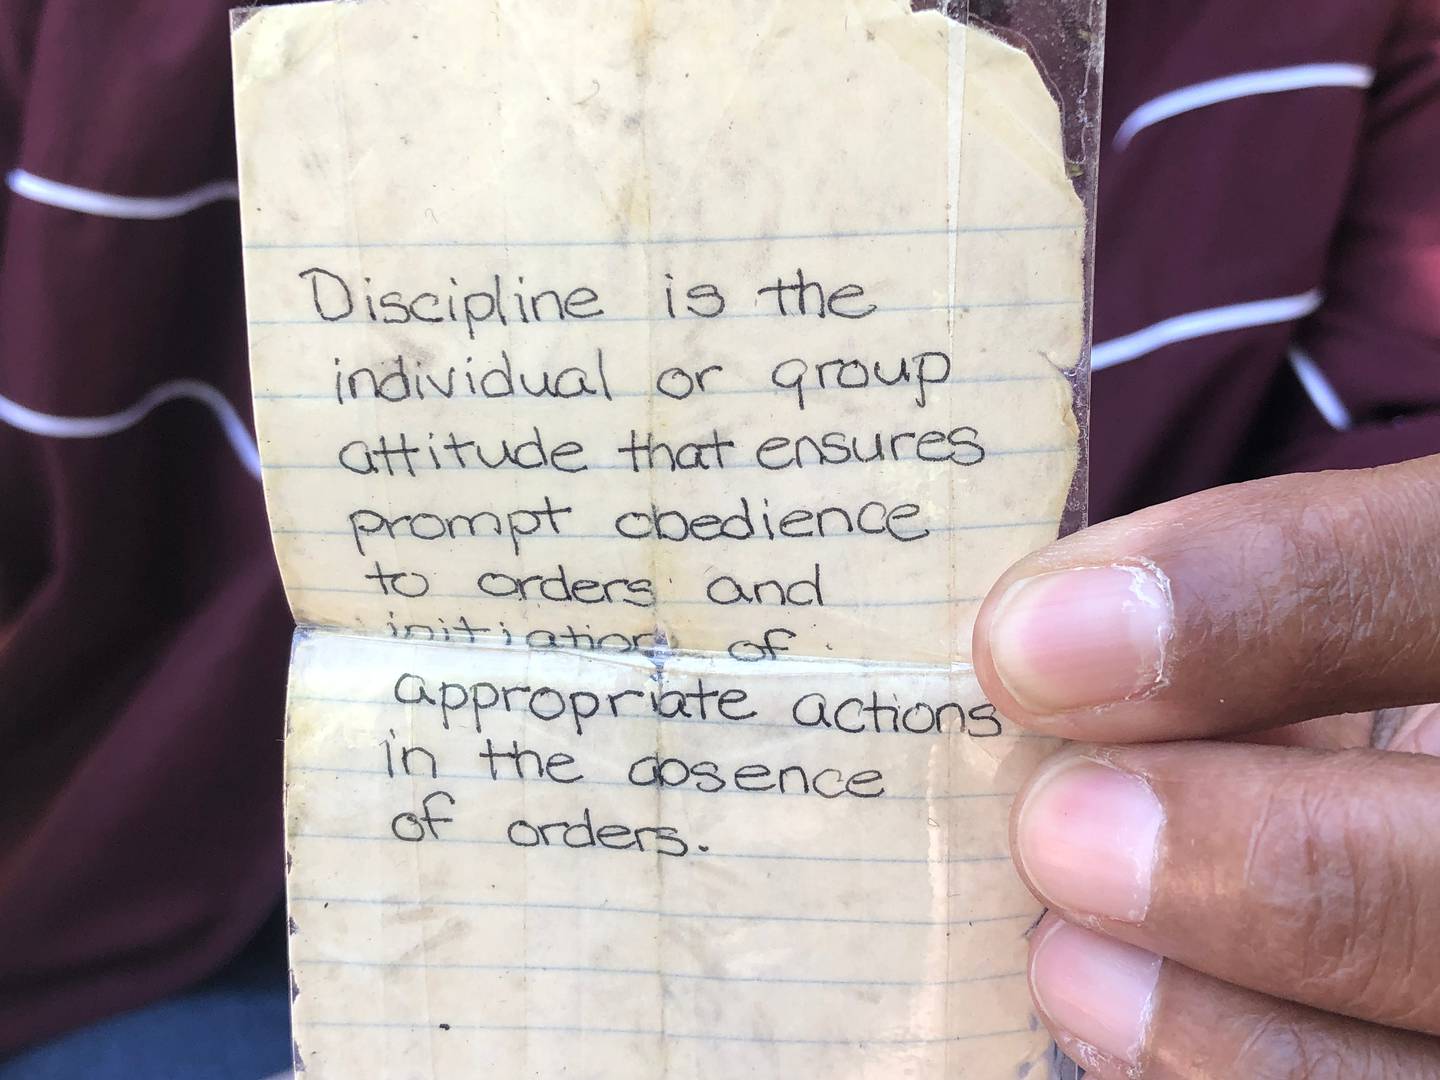 Discipline is the
individual or group
attitude that ensures
prompt obedience
to orders and
initiation of
appropriate actions
in the absence
of orders.